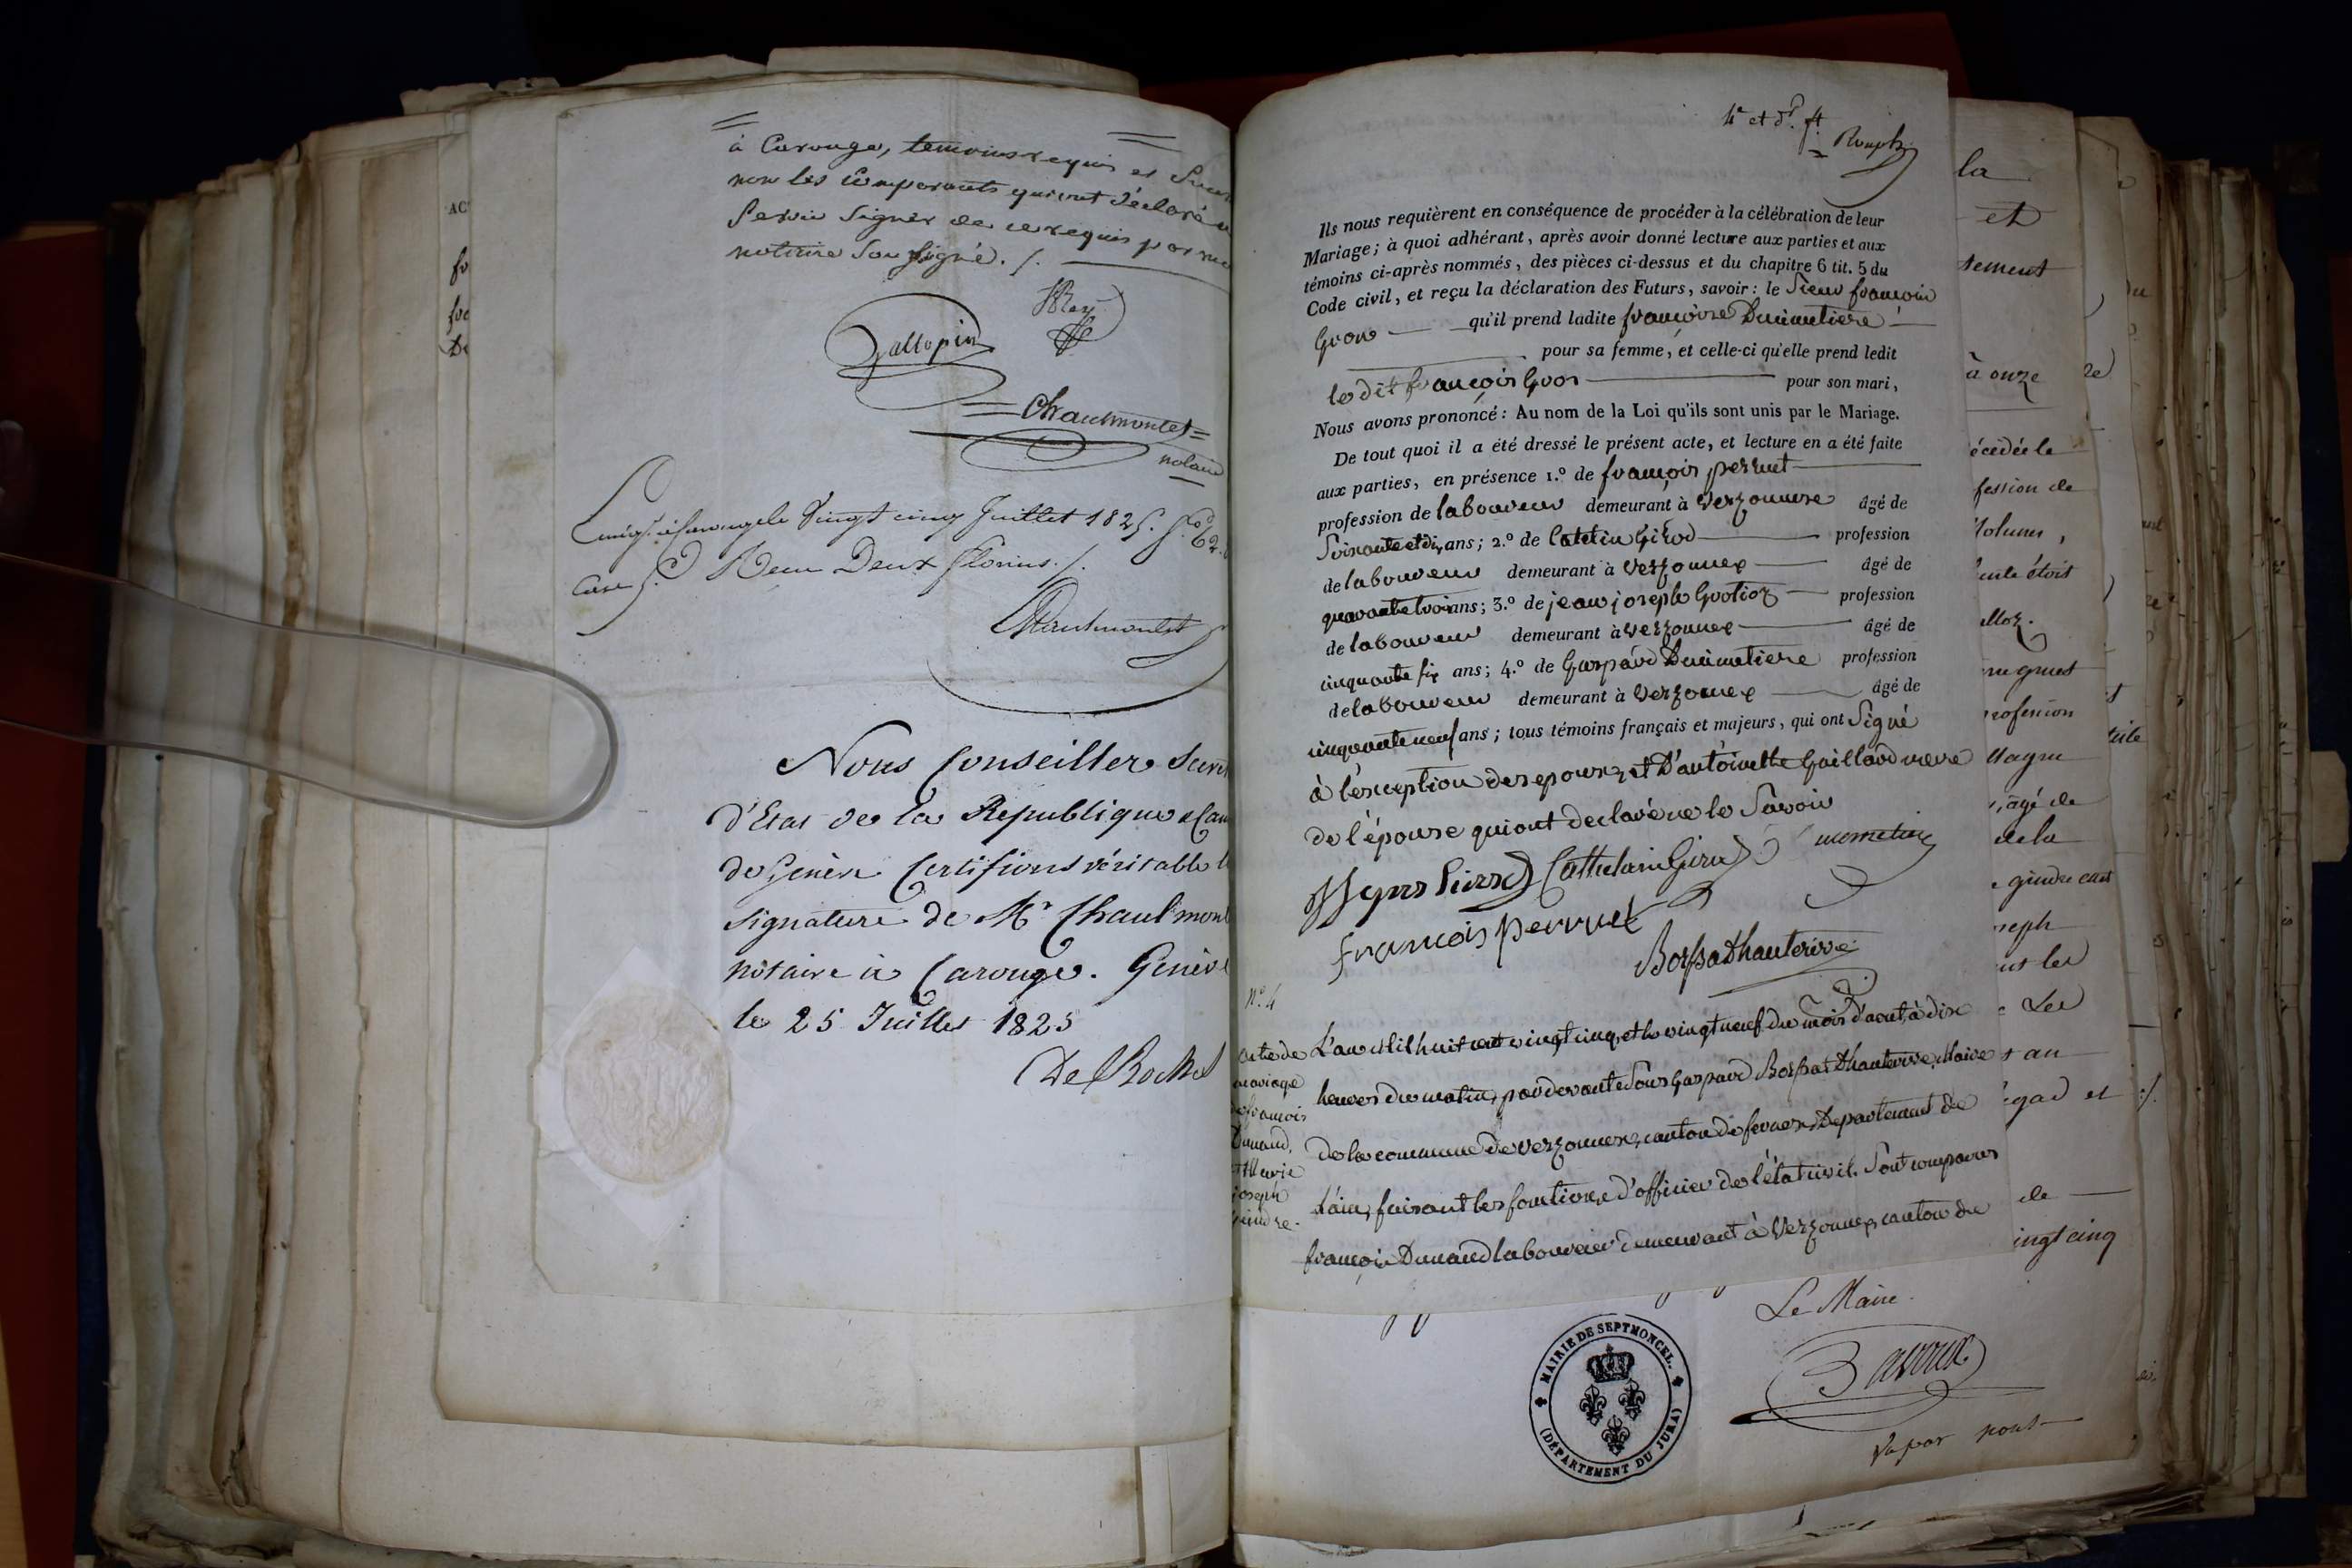 à Carouge, temoins requis et
non les comparants qui ont déclaré
Savoir Signer de ce requis par
notaire Soussigné. /.
Rey
Gallopin
Chaulmontet
notaire
Carouge le Vingt cinq Juillet 1825. f.° 62.
Case 5. Reçu Deux florins. /.
Chaulmontet
Nous Conseiller
d'Etat de la République &
de Genève Certifions véritable
signature de Mr Chaulmont
notaire à Carouge. Genève
le 25 Juillet 1825
De Roches
AC
4e et dr. ft.
Rouph
Ils nous requièrent en conséquence de procéder à la célébration de leur
Mariage; à quoi adhérant, après avoir donné lecture aux parties et aux
témoins ci-après nommés, des pièces ci-dessus et du chapitre 6 tit. 5 du
Code civil, et reçu la déclaration des Futurs, savoir: le Sieur françois
Gros qu'il prend ladite françoise Dumimetiere
pour sa femme, et celle-ci qu'elle prend ledit
le dit françois Gros pour son mari,
Nous avons prononcé: Au nom de la Loi qu'ils sont unis par le Mariage.
De tout quoi il a été dressé le présent acte, et lecture en a été faite
aux parties, en présence 1.º de françois perruet
profession de laboureur demeurant à Verzonnex âgé de
Soixante et dix ans; 2.º de Catelin Girod profession
de laboureur demeurant à Verzonnex âgé de
quarante trois ans; 3.º de jean joseph Grotioz profession
de laboureur demeurant à Verzonnex âgé de
cinquante six ans; 4.º de Gaspard Dumimetiere profession
de laboureur demeurant à Verzonnex âgé de
cinquante neuf ans; tous témoins français et majeurs, qui ont Signé
à l'exception des epoux, et D'antoinette Gaillard mere
de l'épouse qui ont declaré ne le Savoir
Cathelain Girod
francois perruet
Borssat Dhauterive
N.º 4
acte de
mariage
de francois
Dunand,
et Marie
joseph
Gindre.
L'an mil huit cent vingt cinq, et le vingt neuf du mois d'aout, à dix
heures du matin, pardevant Nous Gaspard Borssat Dhauterive, Maire
de la commune de Verzonnex, canton de fernex, Departement de
L'ain, faisant les fonctions d'officier de l'état civil. Sont comparus
françois Dunand laboureur demeurant à Verzonnex, canton de
la
et
à onze
écédée le
fession de
ente étoit
rofession
, âgé de
de la
e gindre est
seph
nt les
Les
t an
et
de
ingt cinq
Le Maire.
Vu par nous
MAIRIE DE SEPTMONCEL.
(DÉPARTEMENT DU JURA)